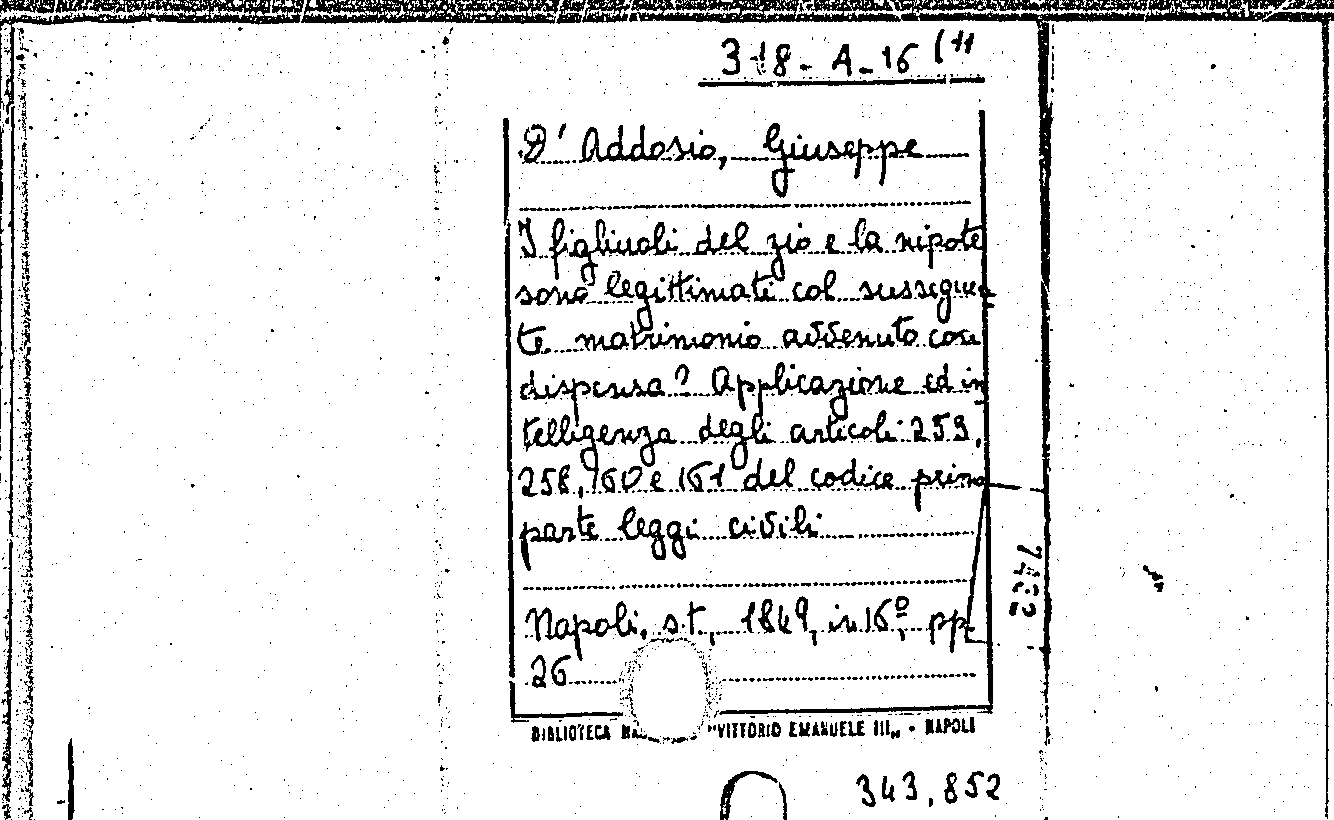 318-A-16 (11
D' Addosio, Giuseppe
I figliuoli del zio e la nipote
sono legittimati col sussegue
te matrimonio avvenuto con
dispensa? Applicazione ed in
telligenza degli articoli 259,
258, 160 e 161 del codice prima
parte leggi civili
Napoli, s.t., 1849, in 16º, pp.
26
BIBLIOTECA "VITTORIO EMANUELE III„ - NAPOLI
343,852